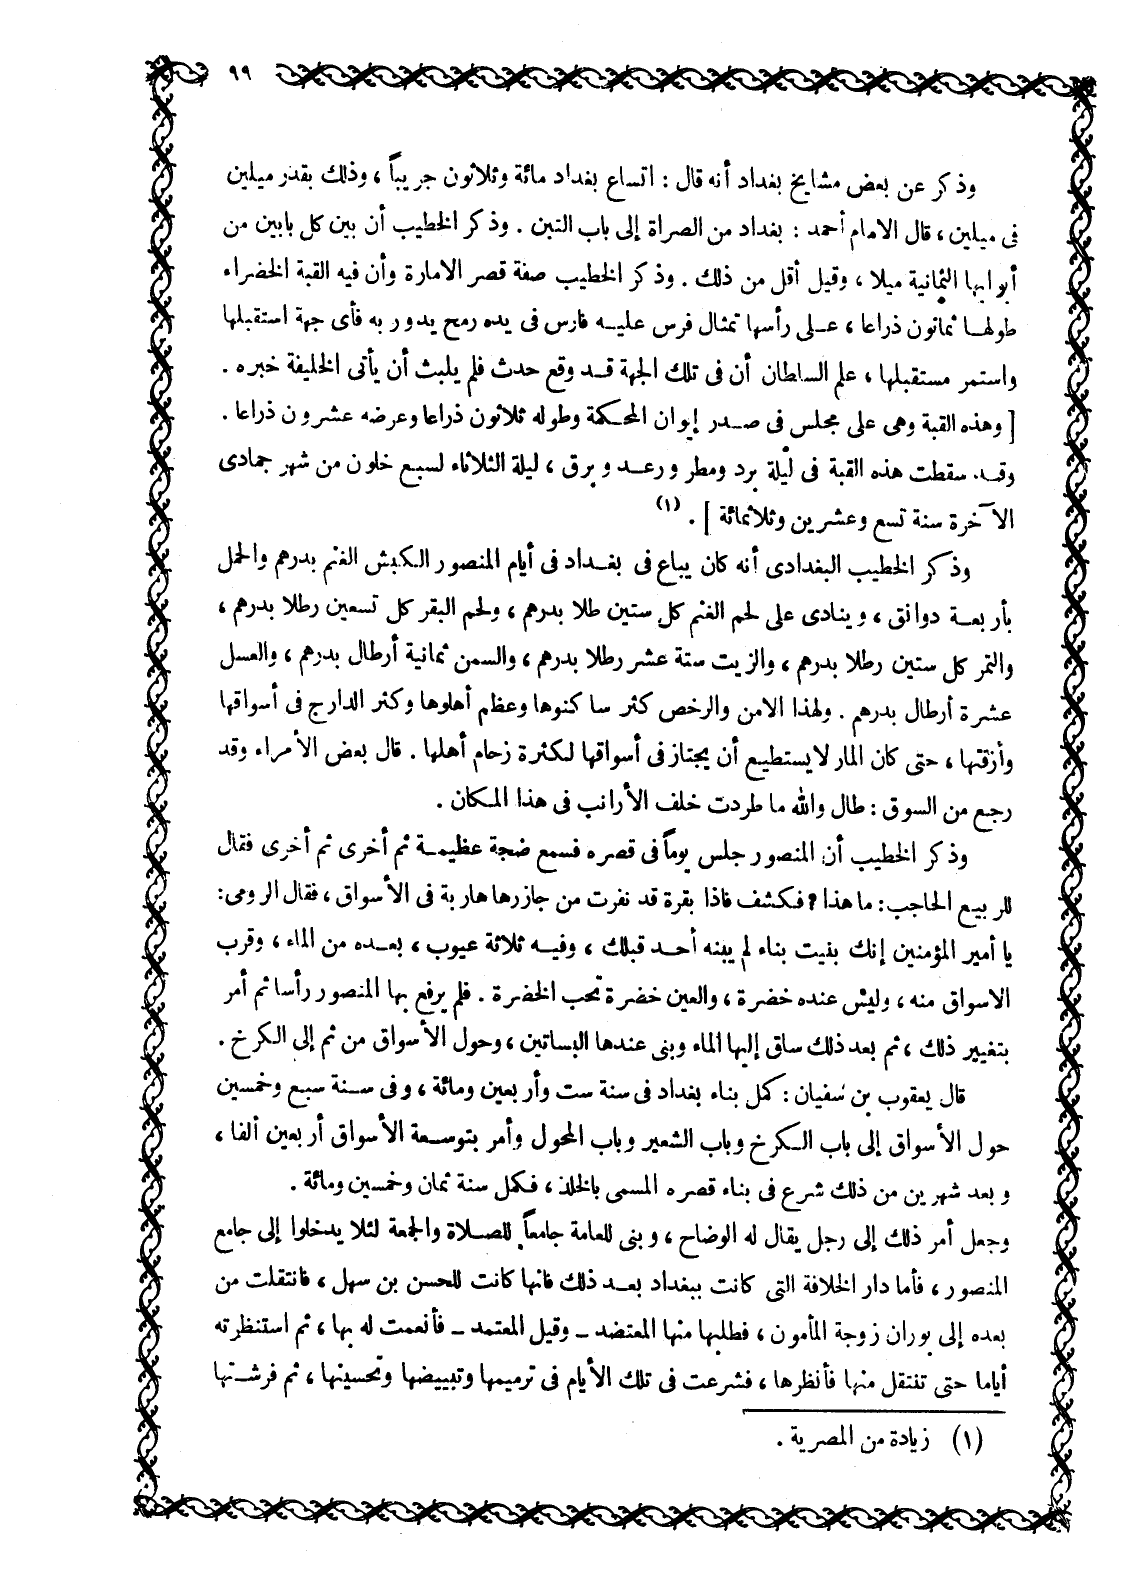 ٩٩
وذكر عن بعض مشايخ بغداد أنه قال : اتساع بغداد مائة وثلاثون جريباً ، وذلك بقدر ميلين
فى ميلين ، قال الامام أحمد : بغداد من الصراة إلى باب التبن . وذكر الخطيب أن بين كل بابين من
أبوابها الثمانية ميلا ، وقيل أقل من ذلك . وذكر الخطيب صفة قصر الامارة وأن فيه القبة الخضراء
طولها ثمانون ذراعا ، على رأسها تمثال فرس عليه فارس فى يده رمح يدور به فأى جهة استقبلها
واستمر مستقبلها ، علم السلطان أن فى تلك الجهة قد وقع حدث فلم يلبث أن يأتى الخليفة خبره .
[ وهذه القبة وهى على مجلس فى صدر إيوان المحكمة وطوله ثلاثون ذراعا وعرضه عشرون ذراعا .
وقد سقطت هذه القبة فى ليلة برد ومطر ورعد وبرق ، ليلة الثلاثاء لسبع خلون من شهر جمادى
الآخرة سنة تسع وعشرين وثلاثمائة ] . (١)
وذكر الخطيب البغدادى أنه كان يباع فى بغداد فى أيام المنصور الكبش الغنم بدرهم والحمل
بأربعة دوانق ، وينادى على لحم الغنم كل ستين طلا بدرهم ، ولحم البقر كل تسعين رطلا بدرهم ،
والتمر كل ستين رطلا بدرهم ، والزيت ستة عشر رطلا بدرهم ، والسمن ثمانية أرطال بدرهم ، والعسل
عشرة أرطال بدرهم . ولهذا الامن والرخص كثر ساكنوها وعظم أهلوها وكثر الدارج فى أسواقها
وأزقتها ، حتى كان المار لا يستطيع أن يجتاز فى أسواقها لكثرة زحام أهلها . قال بعض الأمراء وقد
رجع من السوق : طال والله ما طردت خلف الأرانب فى هذا المكان .
وذكر الخطيب أن المنصور جلس يوماً فى قصره فسمع ضجة عظيمة ثم أخرى ثم أخرى فقال
للربيع الحاجب : ما هذا ؟ فكشف فاذا بقرة قد نفرت من جازرها هاربة فى الأسواق ، فقال الرومى :
يا أمير المؤمنين إنك بنيت بناء لم يبنه أحد قبلك ، وفيه ثلاثة عيوب ، بعده من الماء ، وقرب
الاسواق منه ، وليش عنده خضرة ، والعين خضرة تحب الخضرة . فلم يرفع بها المنصور رأسا ثم أمر
بتغيير ذلك ، ثم بعد ذلك ساق إليها الماء وبنى عندها البساتين ، وحول الأسواق من ثم إلى الكرخ .
قال يعقوب بن سفيان : كمل بناء بغداد فى سنة ست وأربعين ومائة ، وفى سنة سبع وخمسين
حول الأسواق إلى باب الكرخ وباب الشعير وباب المحول وأمر بتوسعة الأسواق أربعين ألفا ،
وبعد شهرين من ذلك شرع فى بناء قصره المسمى بالخلد ، فكمل سنة ثمان وخمسين ومائة .
وجعل أمر ذلك إلى رجل يقال له الوضاح ، وبنى للعامة جامعاً للصلاة والجمعة لئلا يدخلوا إلى جامع
المنصور ، فأما دار الخلافة التى كانت ببغداد بعد ذلك فانها كانت للحسن بن سهل ، فانتقلت من
بعده إلى بوران زوجة المأمون ، فطلبها منها المعتضد ـ وقيل المعتمد ـ فأنعمت له بها ، ثم استنظرته
أياما حتى تنتقل منها فأنظرها ، فشرعت فى تلك الأيام فى ترميمها وتبييضها وتحسينها ، ثم فرشتها
(١) زيادة من المصرية .